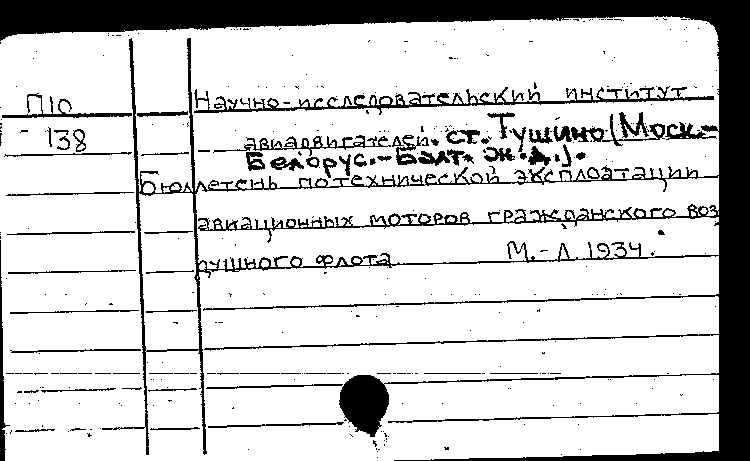 П10 Научно-исследовательский институт
138 авиадвигателей. ст. Тушино (Моск.-
Белорус.-Балт. ж.д.).
Бюллетень по технической эксплоатации
авиационных моторов гражданского воз
душного флота М.-Л. 1934.